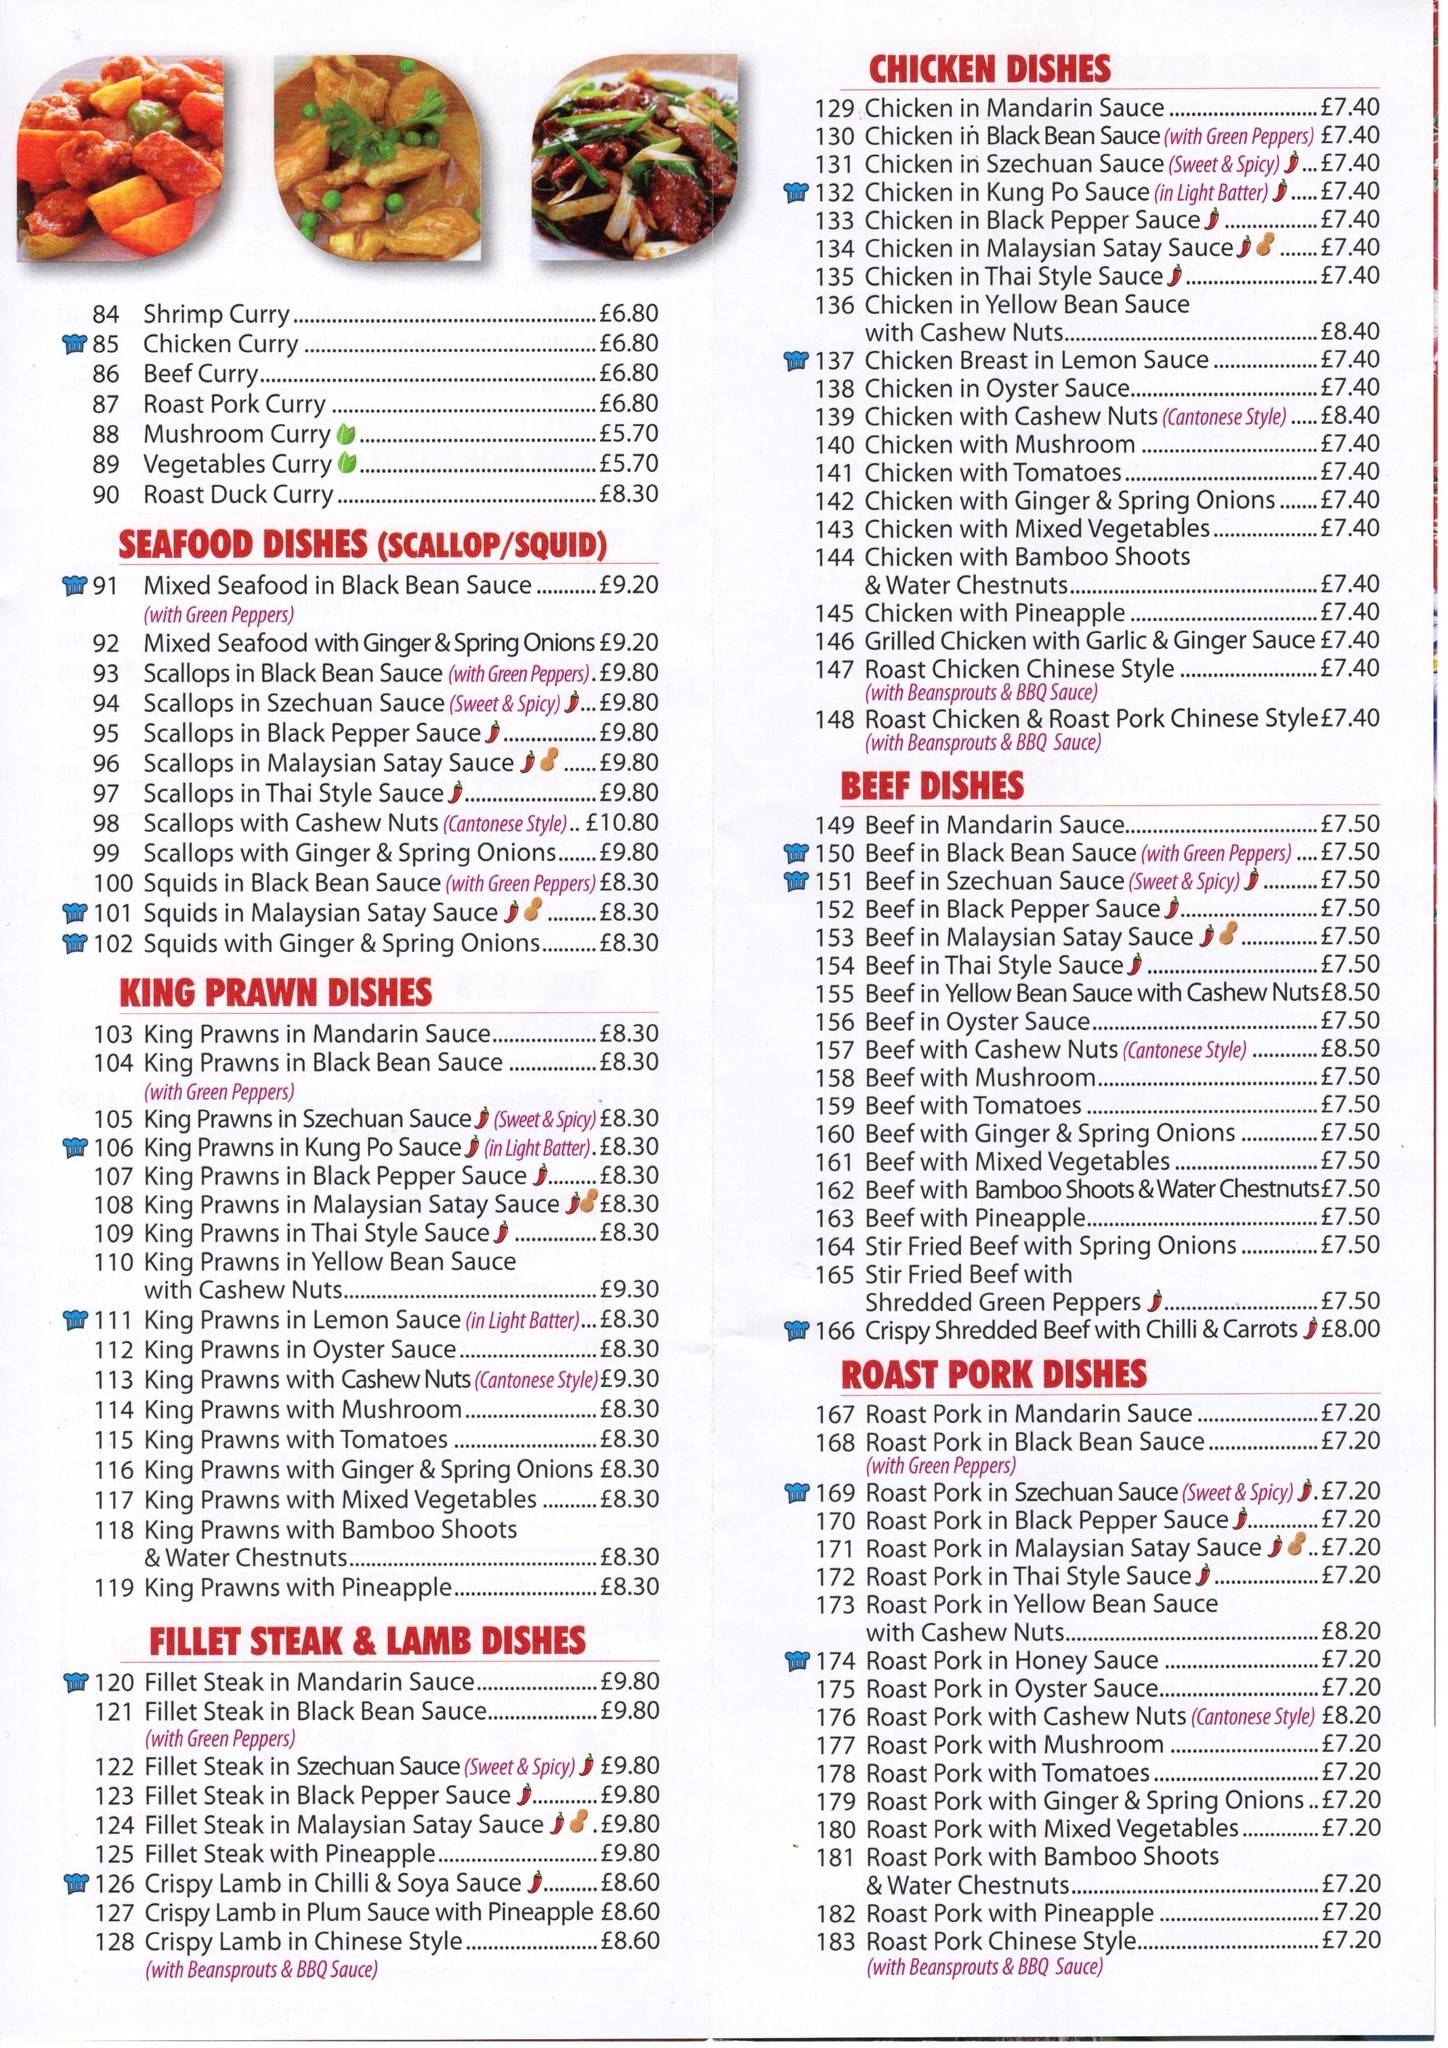 84 Shrimp Curry £6.80
85 Chicken Curry £6.80
86 Beef Curry £6.80
87 Roast Pork Curry £6.80
88 Mushroom Curry £5.70
89 Vegetables Curry £5.70
90 Roast Duck Curry £8.30
SEAFOOD DISHES (SCALLOP/SQUID)
91 Mixed Seafood in Black Bean Sauce £9.20
(with Green Peppers)
92 Mixed Seafood with Ginger & Spring Onions £9.20
93 Scallops in Black Bean Sauce (with Green Peppers) £9.80
94 Scallops in Szechuan Sauce (Sweet & Spicy) £9.80
95 Scallops in Black Pepper Sauce £9.80
96 Scallops in Malaysian Satay Sauce £9.80
97 Scallops in Thai Style Sauce £9.80
98 Scallops with Cashew Nuts (Cantonese Style) £10.80
99 Scallops with Ginger & Spring Onions £9.80
100 Squids in Black Bean Sauce (with Green Peppers) £8.30
101 Squids in Malaysian Satay Sauce £8.30
102 Squids with Ginger & Spring Onions £8.30
KING PRAWN DISHES
103 King Prawns in Mandarin Sauce £8.30
104 King Prawns in Black Bean Sauce £8.30
(with Green Peppers)
105 King Prawns in Szechuan Sauce (Sweet & Spicy) £8.30
106 King Prawns in Kung Po Sauce (in Light Batter) £8.30
107 King Prawns in Black Pepper Sauce £8.30
108 King Prawns in Malaysian Satay Sauce £8.30
109 King Prawns in Thai Style Sauce £8.30
110 King Prawns in Yellow Bean Sauce
with Cashew Nuts £9.30
111 King Prawns in Lemon Sauce (in Light Batter) £8.30
112 King Prawns in Oyster Sauce £8.30
113 King Prawns with Cashew Nuts (Cantonese Style) £9.30
114 King Prawns with Mushroom £8.30
115 King Prawns with Tomatoes £8.30
116 King Prawns with Ginger & Spring Onions £8.30
117 King Prawns with Mixed Vegetables £8.30
118 King Prawns with Bamboo Shoots
& Water Chestnuts £8.30
119 King Prawns with Pineapple £8.30
FILLET STEAK & LAMB DISHES
120 Fillet Steak in Mandarin Sauce £9.80
121 Fillet Steak in Black Bean Sauce £9.80
(with Green Peppers)
122 Fillet Steak in Szechuan Sauce (Sweet & Spicy) £9.80
123 Fillet Steak in Black Pepper Sauce £9.80
124 Fillet Steak in Malaysian Satay Sauce £9.80
125 Fillet Steak with Pineapple £9.80
126 Crispy Lamb in Chilli & Soya Sauce £8.60
127 Crispy Lamb in Plum Sauce with Pineapple £8.60
128 Crispy Lamb in Chinese Style £8.60
(with Beansprouts & BBQ Sauce)
CHICKEN DISHES
129 Chicken in Mandarin Sauce £7.40
130 Chicken in Black Bean Sauce (with Green Peppers) £7.40
131 Chicken in Szechuan Sauce (Sweet & Spicy) £7.40
132 Chicken in Kung Po Sauce (in Light Batter) £7.40
133 Chicken in Black Pepper Sauce £7.40
134 Chicken in Malaysian Satay Sauce £7.40
135 Chicken in Thai Style Sauce £7.40
136 Chicken in Yellow Bean Sauce
with Cashew Nuts £8.40
137 Chicken Breast in Lemon Sauce £7.40
138 Chicken in Oyster Sauce £7.40
139 Chicken with Cashew Nuts (Cantonese Style) £8.40
140 Chicken with Mushroom £7.40
141 Chicken with Tomatoes £7.40
142 Chicken with Ginger & Spring Onions £7.40
143 Chicken with Mixed Vegetables £7.40
144 Chicken with Bamboo Shoots
& Water Chestnuts £7.40
145 Chicken with Pineapple £7.40
146 Grilled Chicken with Garlic & Ginger Sauce £7.40
147 Roast Chicken Chinese Style £7.40
(with Beansprouts & BBQ Sauce)
148 Roast Chicken & Roast Pork Chinese Style £7.40
(with Beansprouts & BBQ Sauce)
BEEF DISHES
149 Beef in Mandarin Sauce £7.50
150 Beef in Black Bean Sauce (with Green Peppers) £7.50
151 Beef in Szechuan Sauce (Sweet & Spicy) £7.50
152 Beef in Black Pepper Sauce £7.50
153 Beef in Malaysian Satay Sauce £7.50
154 Beef in Thai Style Sauce £7.50
155 Beef in Yellow Bean Sauce with Cashew Nuts £8.50
156 Beef in Oyster Sauce £7.50
157 Beef with Cashew Nuts (Cantonese Style) £8.50
158 Beef with Mushroom £7.50
159 Beef with Tomatoes £7.50
160 Beef with Ginger & Spring Onions £7.50
161 Beef with Mixed Vegetables £7.50
162 Beef with Bamboo Shoots & Water Chestnuts £7.50
163 Beef with Pineapple £7.50
164 Stir Fried Beef with Spring Onions £7.50
165 Stir Fried Beef with
Shredded Green Peppers £7.50
166 Crispy Shredded Beef with Chilli & Carrots £8.00
ROAST PORK DISHES
167 Roast Pork in Mandarin Sauce £7.20
168 Roast Pork in Black Bean Sauce £7.20
(with Green Peppers)
169 Roast Pork in Szechuan Sauce (Sweet & Spicy) £7.20
170 Roast Pork in Black Pepper Sauce £7.20
171 Roast Pork in Malaysian Satay Sauce £7.20
172 Roast Pork in Thai Style Sauce £7.20
173 Roast Pork in Yellow Bean Sauce
with Cashew Nuts £8.20
174 Roast Pork in Honey Sauce £7.20
175 Roast Pork in Oyster Sauce £7.20
176 Roast Pork with Cashew Nuts (Cantonese Style) £8.20
177 Roast Pork with Mushroom £7.20
178 Roast Pork with Tomatoes £7.20
179 Roast Pork with Ginger & Spring Onions £7.20
180 Roast Pork with Mixed Vegetables £7.20
181 Roast Pork with Bamboo Shoots
& Water Chestnuts £7.20
182 Roast Pork with Pineapple £7.20
183 Roast Pork Chinese Style £7.20
(with Beansprouts & BBQ Sauce)